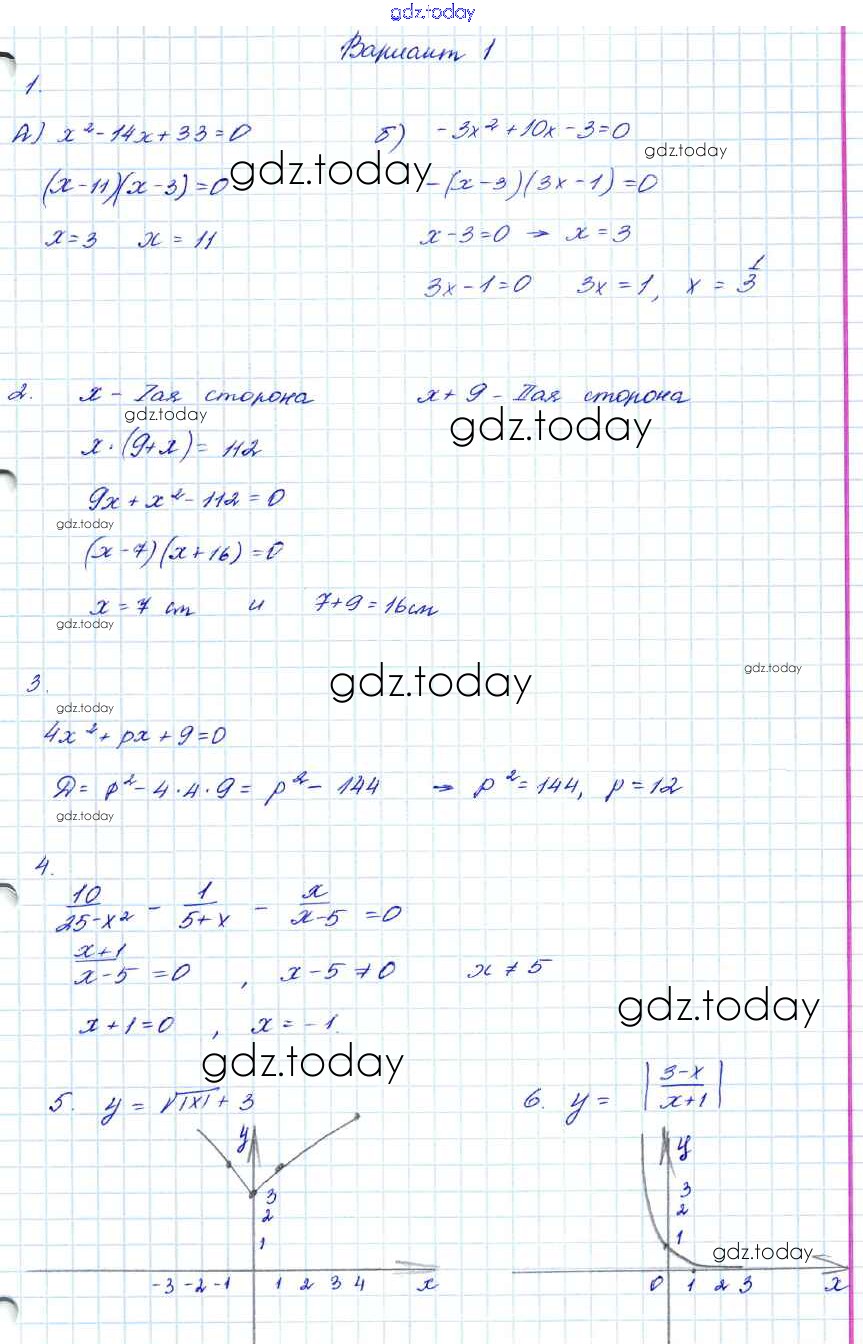 gdz.today
Вариант 1
1.
А) x² - 14x + 33 = 0 б) -3x² + 10x - 3 = 0
gdz.today
(x - 11)(x - 3) = 0 gdz.today -(x - 3)(3x - 1) = 0
x = 3 x = 11 x - 3 = 0 → x = 3
3x - 1 = 0 3x = 1, x = 1/3
2. x - Iая сторона x + 9 - IIая сторона
gdz.today gdz.today
x · (9 + x) = 112
9x + x² - 112 = 0
gdz.today
(x - 7)(x + 16) = 0
x = 7 cm и 7 + 9 = 16 см
gdz.today
3. gdz.today gdz.today
gdz.today
4x² + px + 9 = 0
Д = p² - 4 · 4 · 9 = p² - 144 → p² = 144, p = 12
gdz.today
4.
10/(25 - x²) - 1/(5 + x) - x/(x - 5) = 0
(x + 1)/(x - 5) = 0, x - 5 ≠ 0 x ≠ 5
gdz.today
x + 1 = 0, x = -1.
gdz.today
5. y = √|x| + 3 6. y = |(3 - x)/(x + 1)|
y y
3 3
2 2
1 1
gdz.today
-3 -2 -1 1 2 3 4 x 0 1 2 3 x